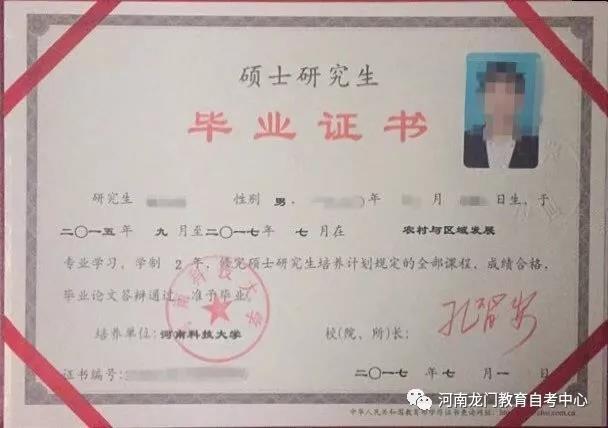 硕士研究生
毕业证书
研究生 性别 男, 年 月 日生,于
二〇一五年 九 月至二〇一七年 七 月在 农村与区域发展
专业学习,学制 2 年,修完硕士研究生培养计划规定的全部课程,成绩合格,
毕业论文答辩通过,准予毕业。
培养单位:河南科技大学 校(院、所)长:
证书编号: 二〇一七年 七 月 一 日
河南龙门教育自考中心